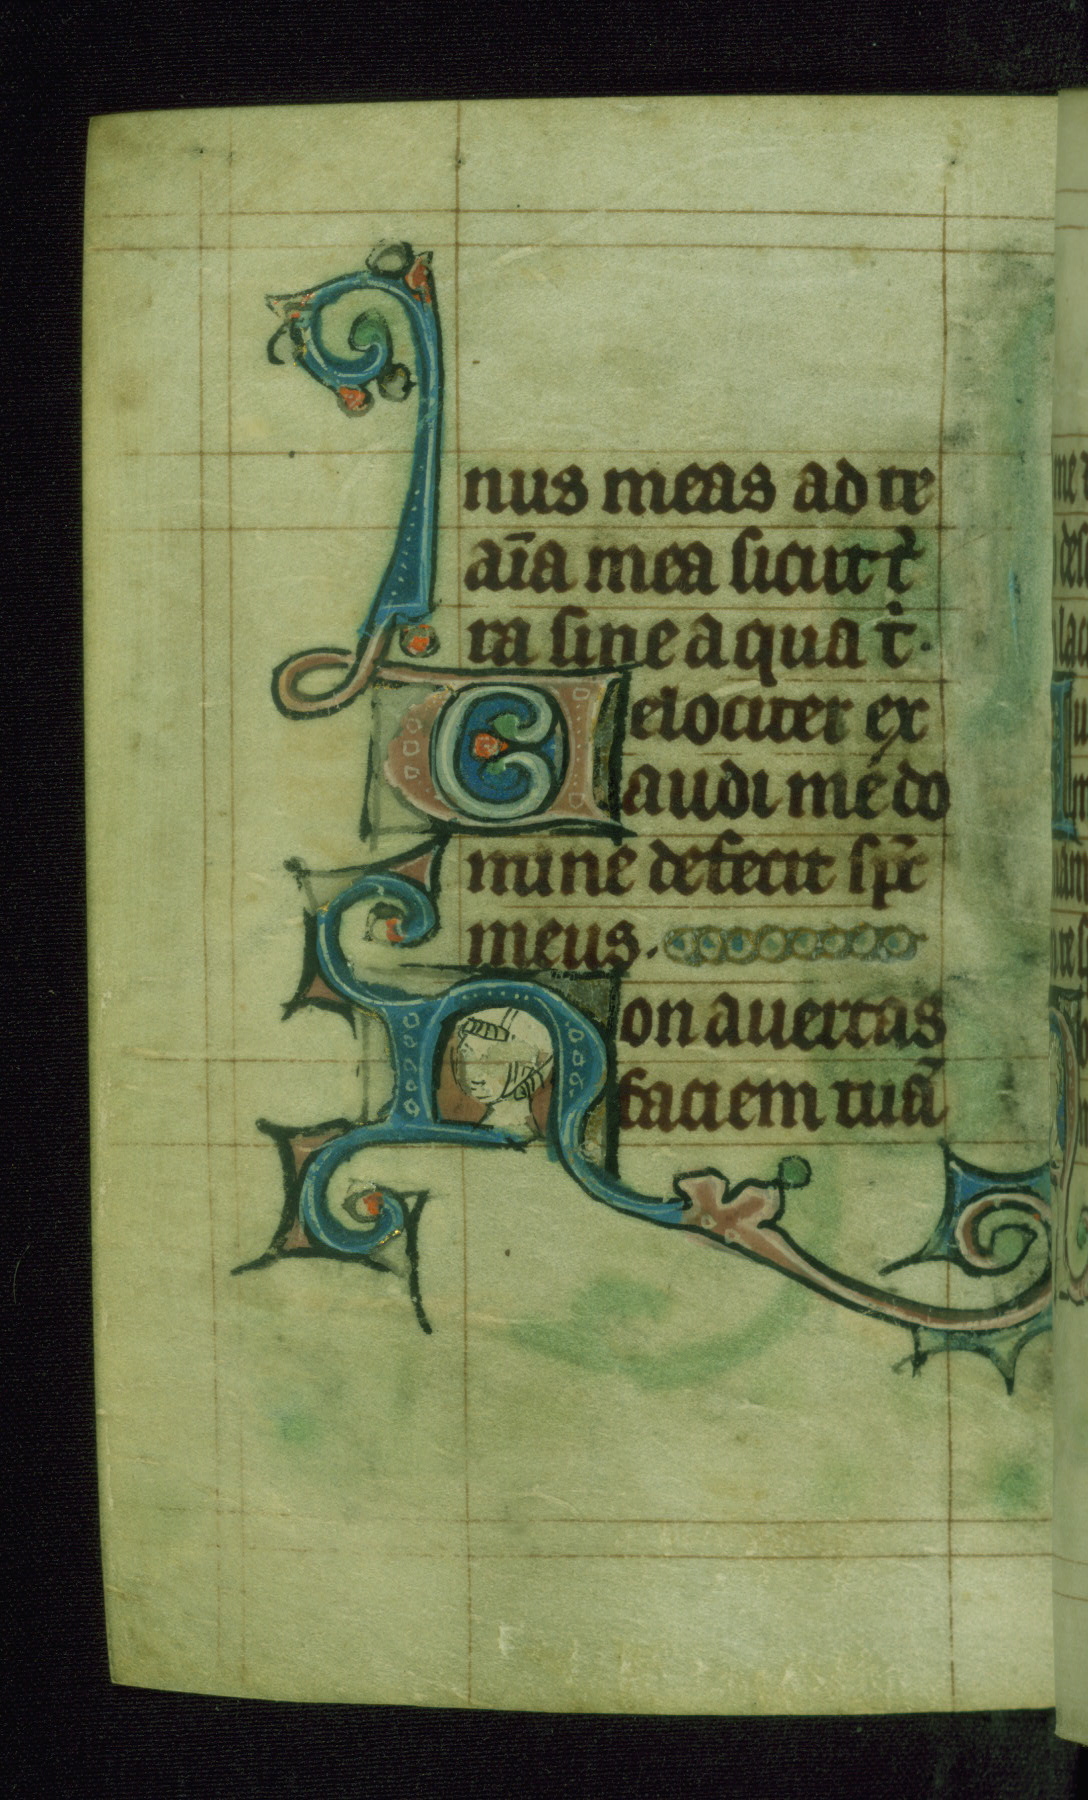 nus meas ad te
aīa mea sicut t̉
ra sine aqua t̉.
Velociter ex
audi me do
mine defecit sp̄c
meus.
Non avertas
faciem tuā